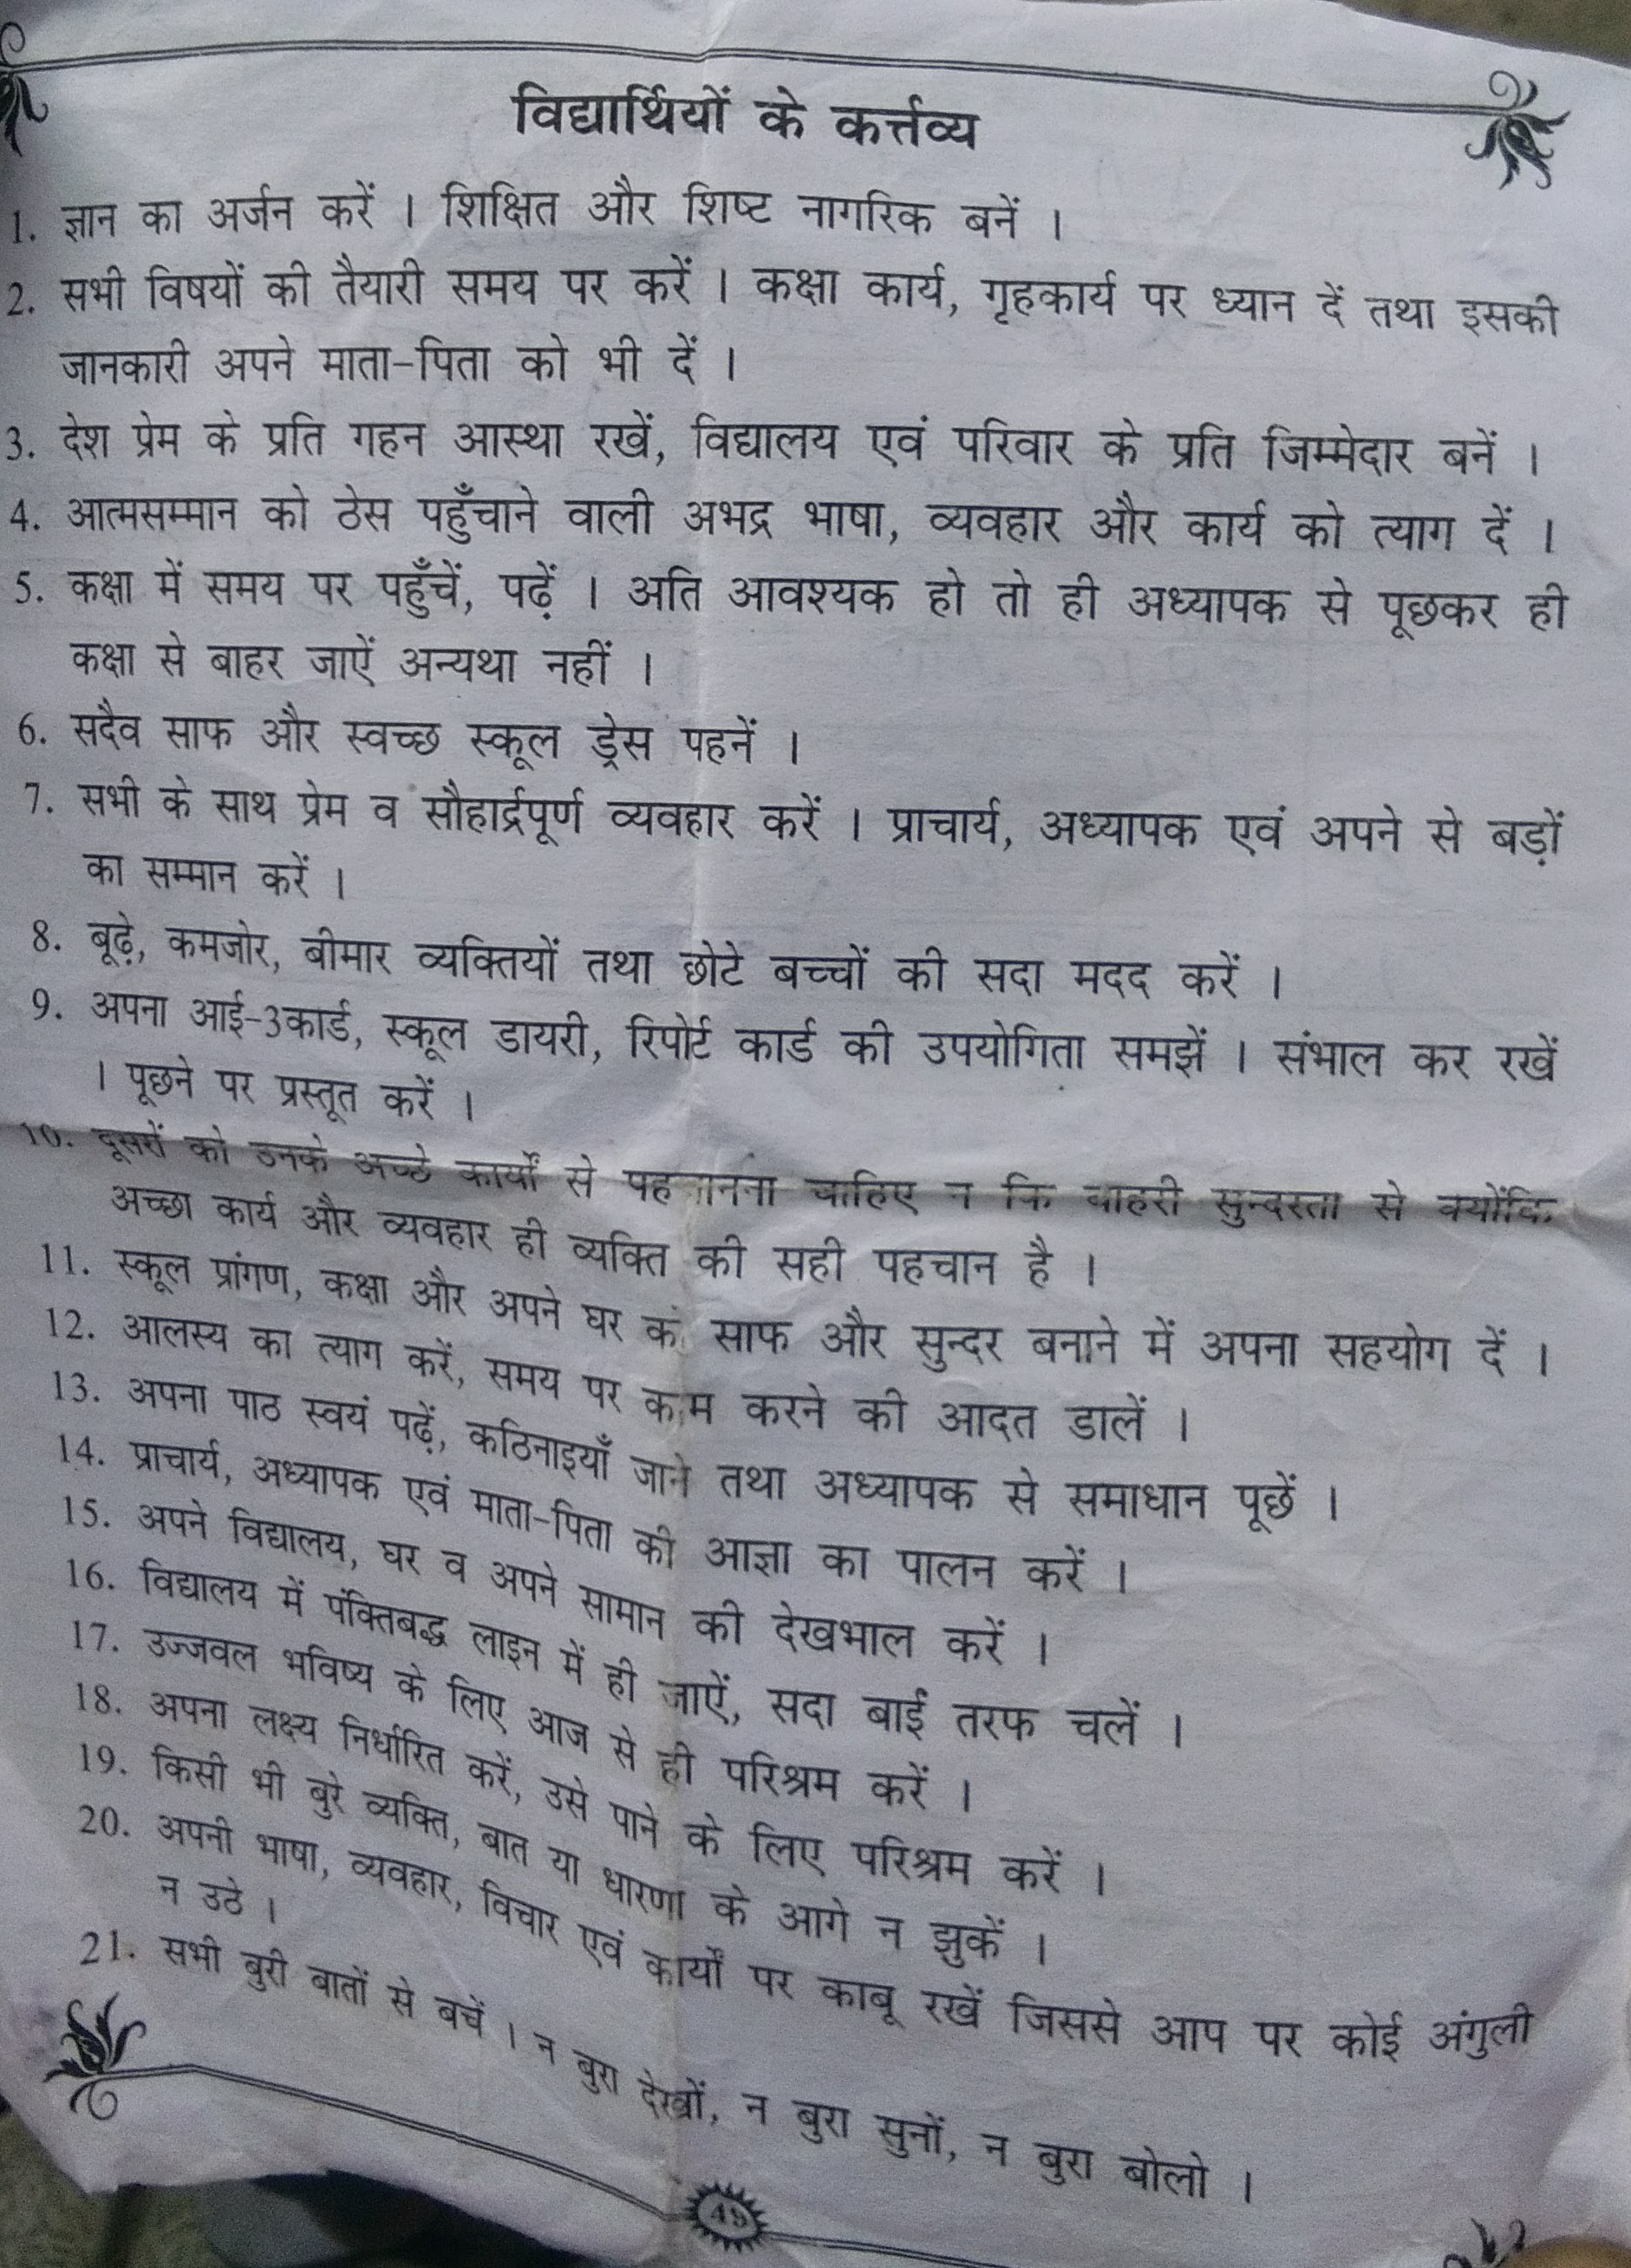 विद्यार्थियों के कर्त्तव्य
1. ज्ञान का अर्जन करें । शिक्षित और शिष्ट नागरिक बनें ।
2. सभी विषयों की तैयारी समय पर करें । कक्षा कार्य, गृहकार्य पर ध्यान दें तथा इसकी
जानकारी अपने माता-पिता को भी दें ।
3. देश प्रेम के प्रति गहन आस्था रखें, विद्यालय एवं परिवार के प्रति जिम्मेदार बनें ।
4. आत्मसम्मान को ठेस पहुँचाने वाली अभद्र भाषा, व्यवहार और कार्य को त्याग दें ।
5. कक्षा में समय पर पहुँचें, पढ़ें । अति आवश्यक हो तो ही अध्यापक से पूछकर ही
कक्षा से बाहर जाऐं अन्यथा नहीं ।
6. सदैव साफ और स्वच्छ स्कूल ड्रेस पहनें ।
7. सभी के साथ प्रेम व सौहार्द्रपूर्ण व्यवहार करें । प्राचार्य, अध्यापक एवं अपने से बड़ों
का सम्मान करें ।
8. बूढ़े, कमजोर, बीमार व्यक्तियों तथा छोटे बच्चों की सदा मदद करें ।
9. अपना आई-3कार्ड, स्कूल डायरी, रिपोर्ट कार्ड की उपयोगिता समझें । संभाल कर रखें
। पूछने पर प्रस्तूत करें ।
10. दूसरों को उनके अच्छे कार्यों से पहचानना चाहिए न कि बाहरी सुन्दरता से क्योंकि
अच्छा कार्य और व्यवहार ही व्यक्ति की सही पहचान है ।
11. स्कूल प्रांगण, कक्षा और अपने घर को साफ और सुन्दर बनाने में अपना सहयोग दें ।
12. आलस्य का त्याग करें, समय पर काम करने की आदत डालें ।
13. अपना पाठ स्वयं पढ़ें, कठिनाइयाँ जाने तथा अध्यापक से समाधान पूछें ।
14. प्राचार्य, अध्यापक एवं माता-पिता की आज्ञा का पालन करें ।
15. अपने विद्यालय, घर व अपने सामान की देखभाल करें ।
16. विद्यालय में पंक्तिबद्ध लाइन में ही जाऐं, सदा बाईं तरफ चलें ।
17. उज्जवल भविष्य के लिए आज से ही परिश्रम करें ।
18. अपना लक्ष्य निर्धारित करें, उसे पाने के लिए परिश्रम करें ।
19. किसी भी बुरे व्यक्ति, बात या धारणा के आगे न झुकें ।
20. अपनी भाषा, व्यवहार, विचार एवं कार्यों पर काबू रखें जिससे आप पर कोई अंगुली
न उठे ।
21. सभी बुरी बातों से बचें । न बुरा देखों, न बुरा सुनों, न बुरा बोलो ।